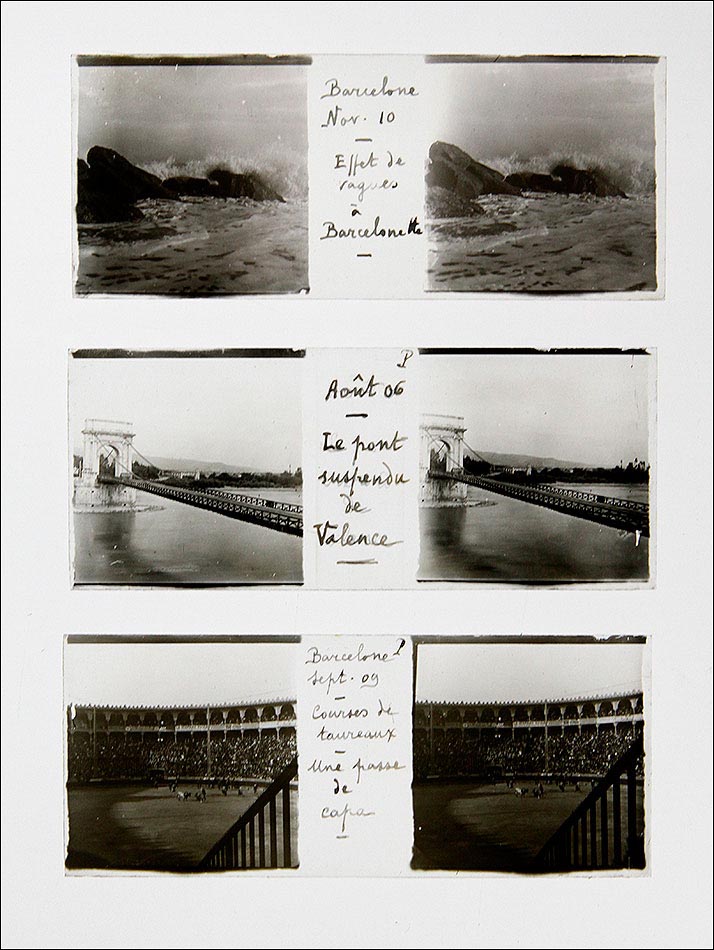 Barcelone
Nov. 10
Effet de
vagues
à
Barcelonette
P
Août 06
Le pont
suspendu
de
Valence
P
Barcelone
Sept. 09
Courses de
taureaux
Une passe
de
capa